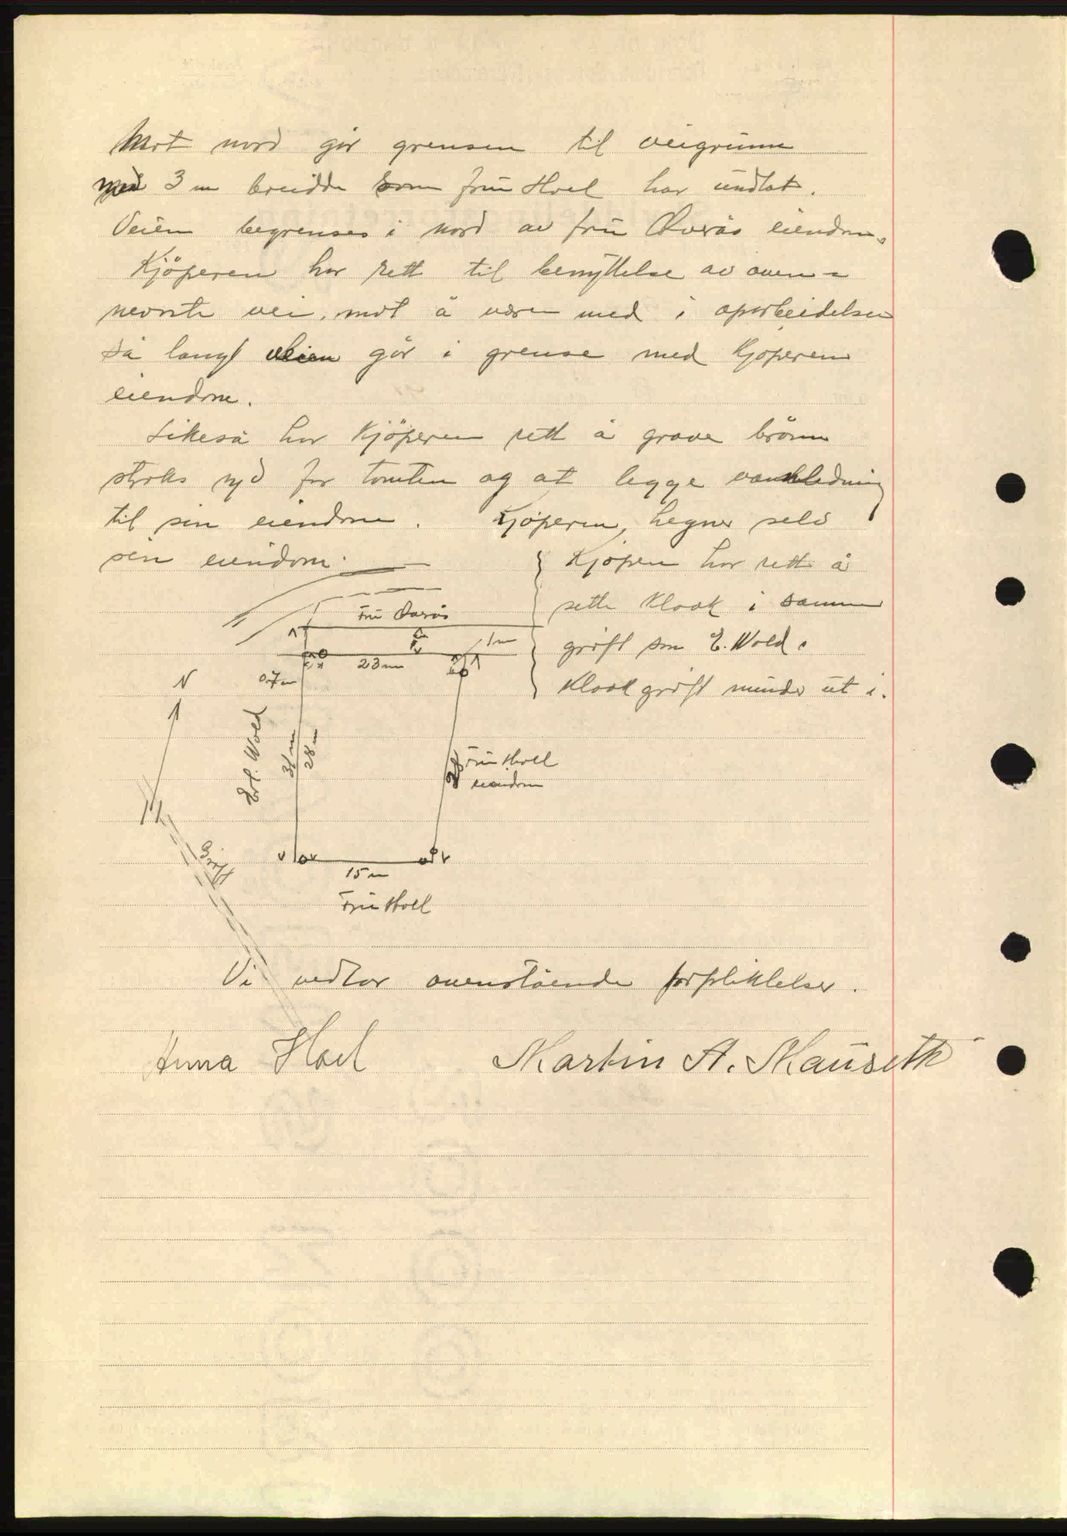 Mot nord går grensen til veigrunn
med 3 m bredde som fru Hoel har undlat.
Veien begrenses i nord av fru Øverås eiendom.
Kjöperen har rett til benyttelse av oven=
nevnte vei, mot å være med i oparbeidelsen
så langt veien går i grense med kjöperens
eiendom.
Likeså har kjöperen rett å grave brönn
straks syd for tomten og at legge vannledning
til sin eiendom. Kjöperen hegner selv
sin eiendom.
Kjöpren har rett å
sette kloak i samme
gröft som E. Wold.
Kloakgröft munder ut i.
Fru Øverås
1 m
23 m
0.7 m
N
Erl. Wold
31 m
28 m
28
Fru Hoel
eiendom
Gröft
15 m
Fru Hoel
Vi vedtar ovenstående forpliktelser.
Anna Hoel Martin A. Mauseth